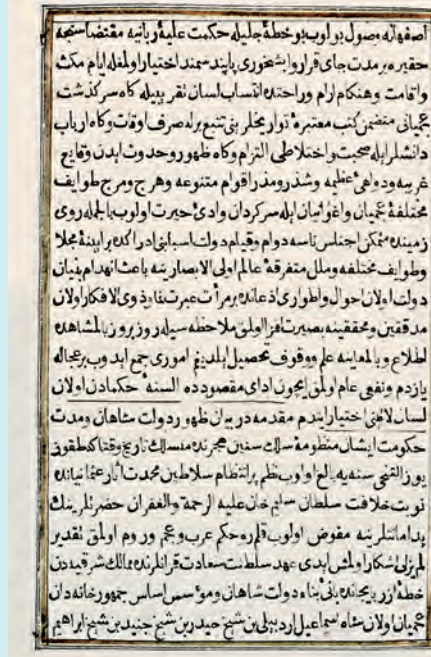 اصفهانه وصول بولوب بو خطهٔ جلیله حکمت علیهٔ ربانیه مقتضاسنجه
حقیره بر مدت جای قرار و ابشخوری پایبند سمند اختیار اولمغله ایام مکث
واقامت وهنکام ارام وراحتده لسان نقر بیله کاه سرکذشت
عجمیانی متضمن کتب معتبرهٔ تواریخلرینی تتبع برله صرف اوقات وکاه ارباب
دانشلر ایله صحبت واختلاطی التزام وکاه ظهور وحدوث ایدن وقایع
غریبه ودواهیٔ عظیمه وشذر ومذر اقوام متنوعه وهرج ومرج طوایف
مختلفهٔ عجمیان واغوانیان ایله سرکردان وادیٔ حیرت اولوب بالجمله روی
زمینده متمکن اجناس ناسه دوام وقیام دولت اسبابنی ادراکده بر اینهٔ مجلا
وطوایف مختلفه وملل متفرقهٔ عالم اولی الابصارینه باعث انهدام بنیان
دولت اولان احوال واطواری اذعانده بر مرأت عبرتنما وذوی الافکار اولان
مدققین ومحققینه بصیرت افزا اولمق ملاحظه سیله روز بروز بالمشاهده
اطلاع وبالمعاینه علم ووقوف تحصیل ایلدیکم اموری جمع ایدوب بر عجاله
یازدم ونفعی عام اولمق ایچون ادای مقصودده السنهٔ حکمادن اولان
لسان لاتینی اختیار ایتدم مقدمه در بیان ظهور دولت شاهان ومدت
حکومت ایشان منظومهٔ سلک سنین هجرتده منسلک تاریخ وقتاکه طقوز
یوز التمش سنه یه بالغ اولوب نظم برانتظام سلاطین محمدت اثار عثمانیانده
نوبت خلافت سلطان سلیم خان علیه الرحمة والغفران حضرتلرینک
ید امانتلرینه مفوض اولوب قلمرو حکم عرب وعجم وروم اولمق تقدیر
لم یزلی اشکار اولمش ایدی عهد سلطنت سعادت قرانلرنده ممالک شرقیه دن
خطهٔ اذربیجانده بانیٔ بناء دولت شاهان ومؤسس اساس جمهور خاندان
عجمیان اولان شاه اسماعیل اردبیلی بن شیخ حیدر بن شیخ جنید بن شیخ ابراهیم